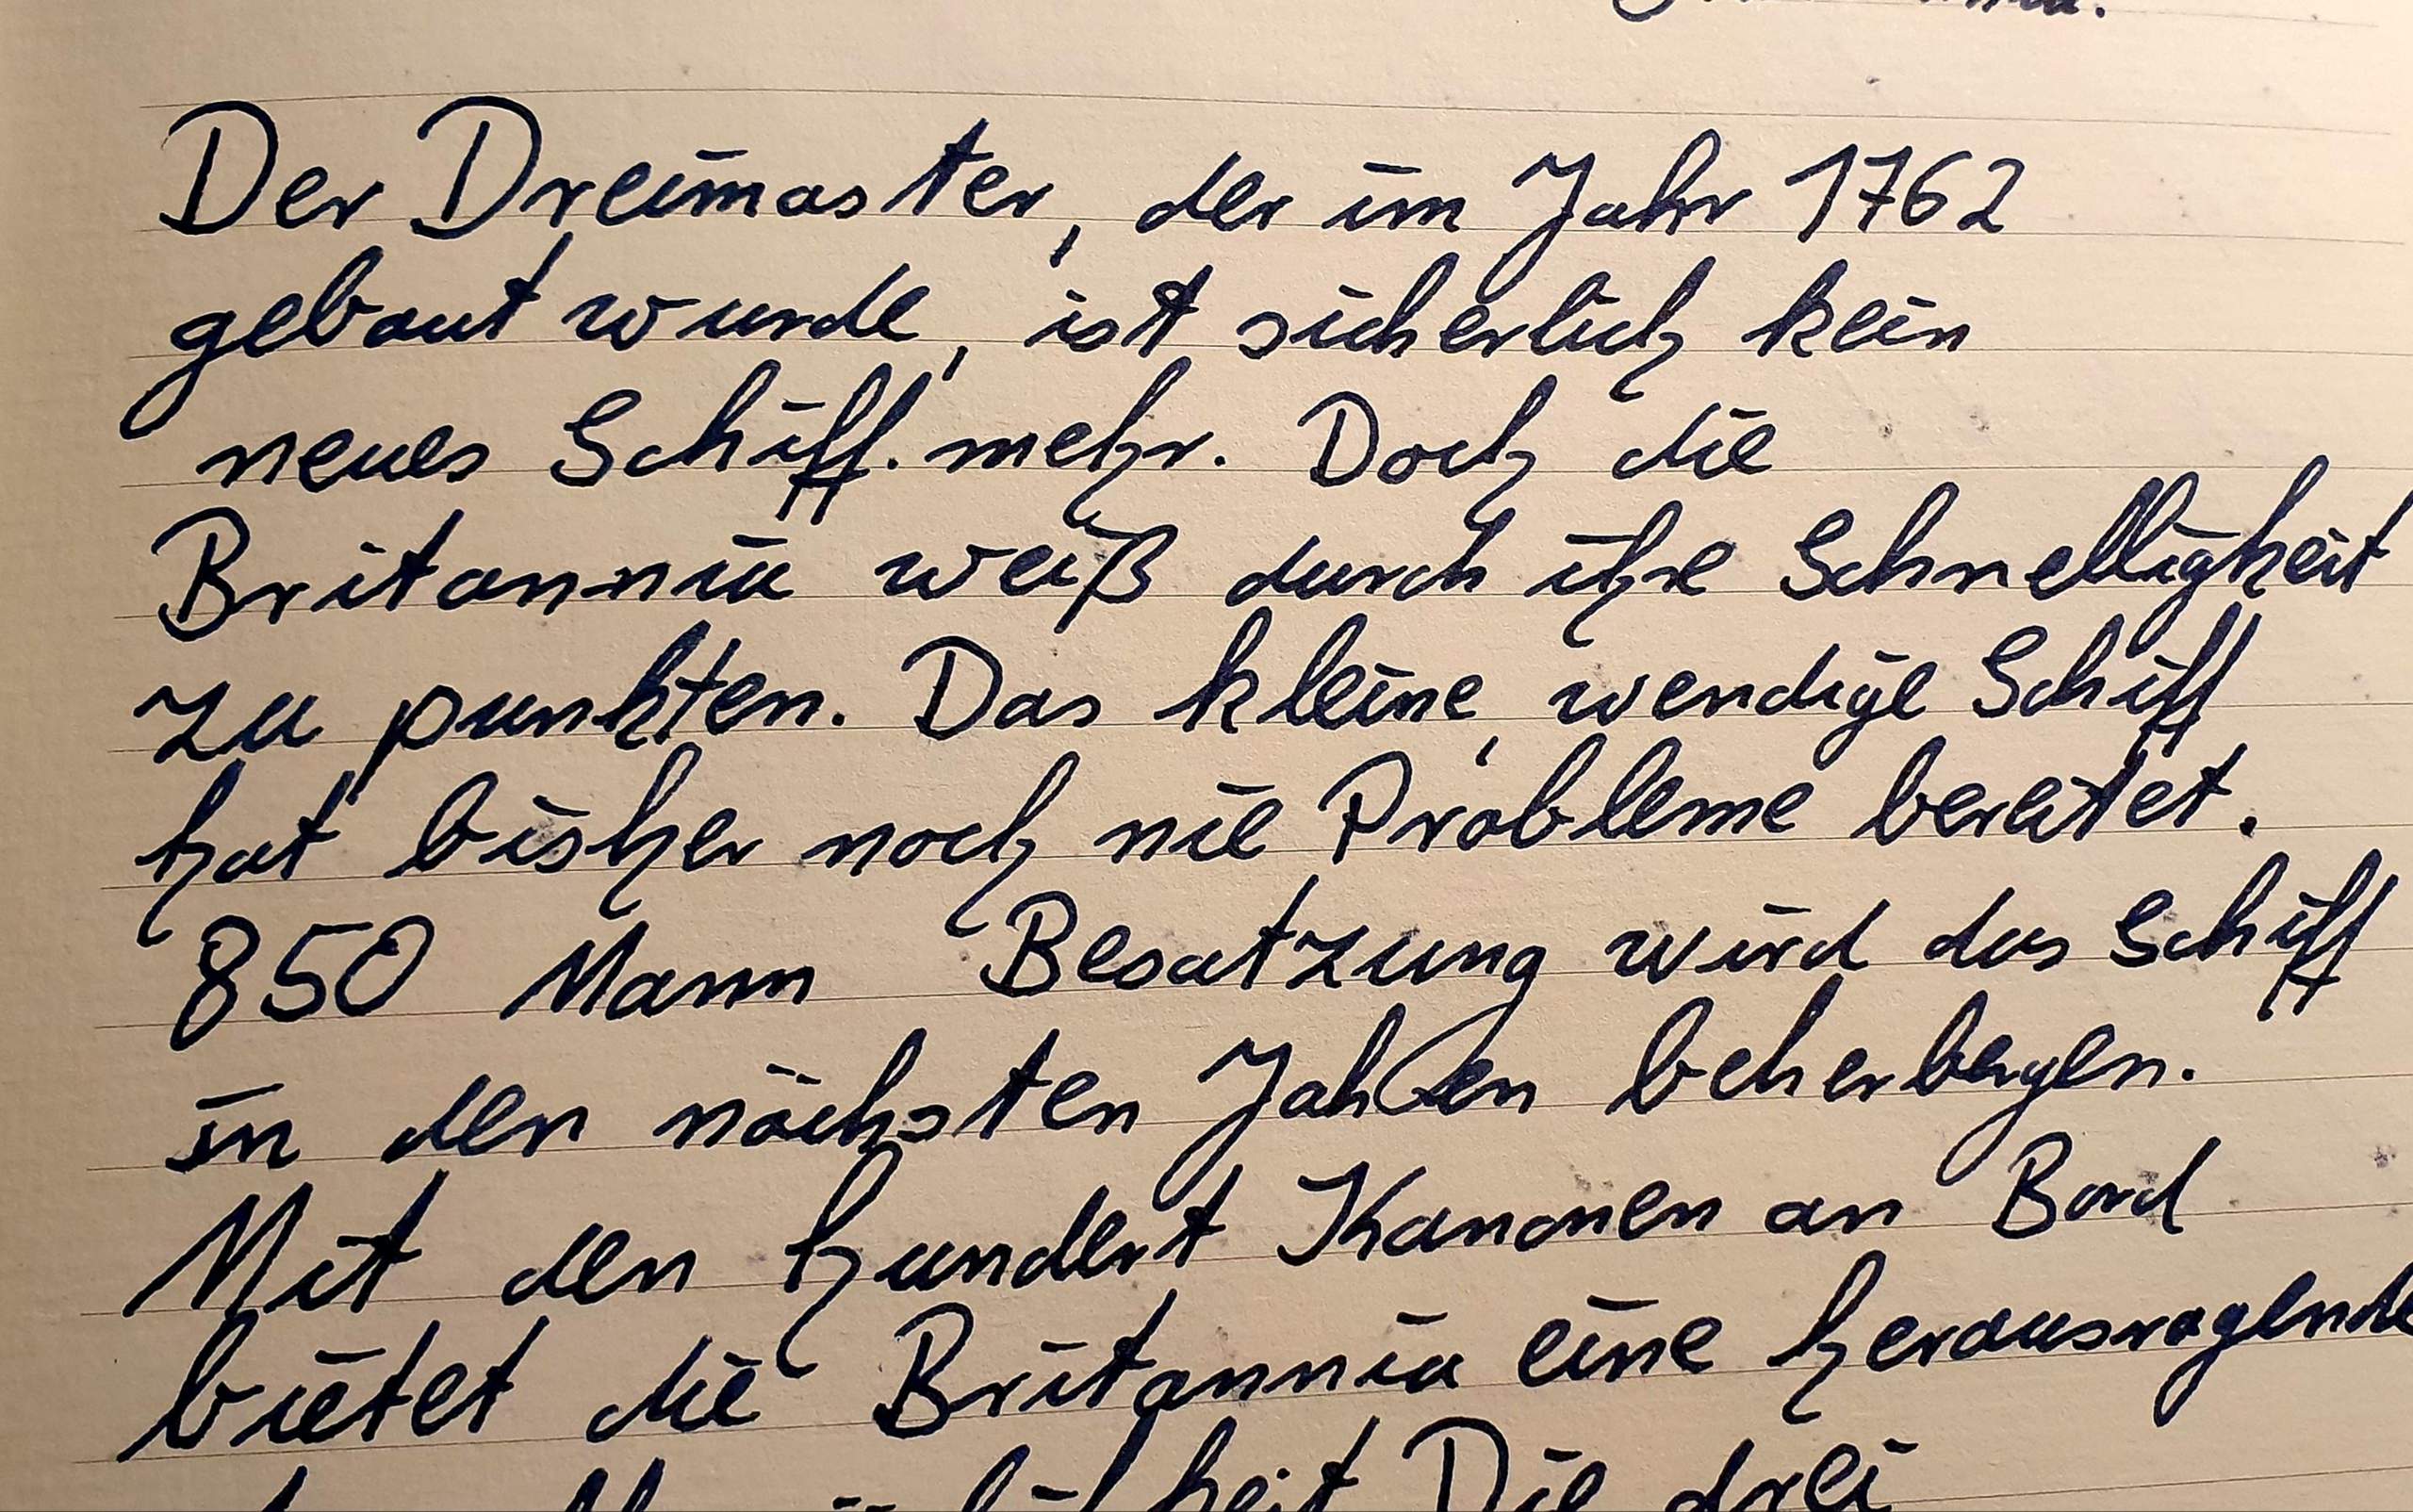 Der Dreimaster, der im Jahr 1762
gebaut wurde, ist sicherlich kein
neues Schiff. mehr. Doch die
Britannia weiß durch ihre Schnelligkeit
zu punkten. Das kleine, wendige Schiff
hat bisher noch nie Probleme bereitet.
850 Mann Besatzung wird das Schiff
in den nächsten Jahren beherbergen.
Mit den hundert Kanonen an Bord
bietet die Britannia eine herausragende
Die drei